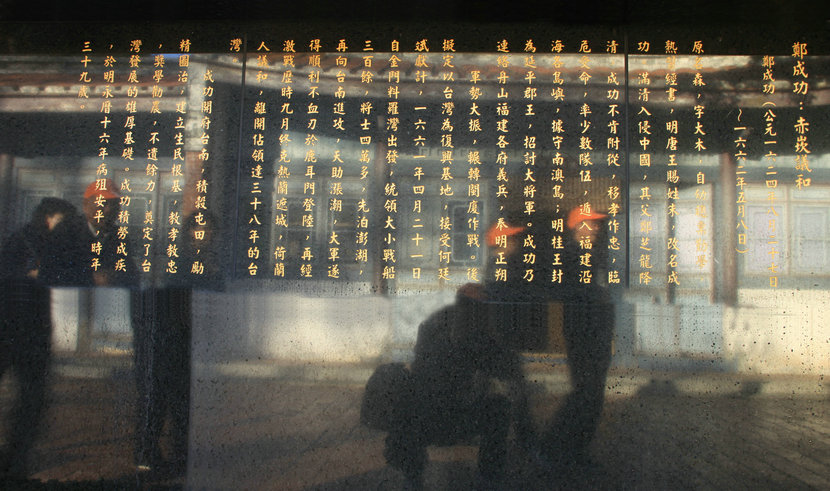 鄭成功：赤崁議和
鄭成功（公元一六二四年八月二十七日
～一六六二年五月八日）
原名森，字大木，自幼
熟讀經書，明唐王賜姓朱，改名成
功。滿清入侵中國，其父鄭芝龍降
清，成功不肯附從，移孝作忠，臨
危受命，率少數隊伍，遁入福建沿
海各島嶼，據守南澳島；明桂王封
為延平郡王，招討大將軍。成功乃
連絡舟山福建各府義兵，奉明正朔
軍勢大振，輾轉閩廈作戰。後
擬定以台灣為復興基地，接受何廷
斌獻計，一六六一年四月二十一日
自金門料羅灣出發，統領大小戰船
三百餘，將士四萬多，先泊澎湖，
再向台南進攻，天助漲潮，大軍遂
得順利不血刃於鹿耳門登陸，再經
激戰歷時九月終克熱蘭遮城，荷蘭
人議和，離開佔領達三十八年的台
灣。
成功開府台南，積穀屯田，勵
精圖治，建立生民根基，教孝教忠
，獎學勸農，不遺餘力，奠定了台
灣發展的雄厚基礎。成功積勞成疾
，於明永曆十六年病殂安平，時年
三十九歲。